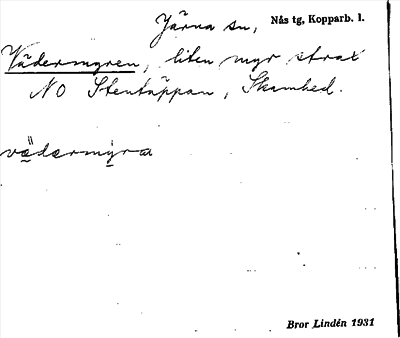 Järna sn, Nås tg, Kopparb. l.
Vädermyren, liten myr strax
NO Stentäppan, Skamhed.
vädermyra
Bror Lindén 1931